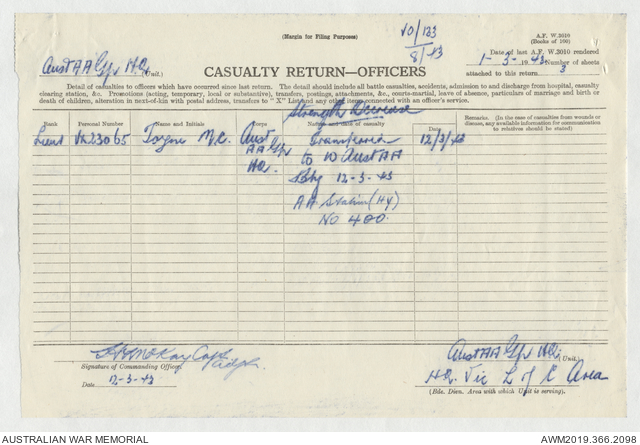 (Margin for Filing Purposes)
10/123
8/43
A.F. W.3010
(Books of 100)
Aust AA Gp H.Q. (Unit.)
Date of last A.F. W.3010 rendered
1-3-1943. Number of sheets
attached to this return 3
CASUALTY RETURN—OFFICERS
Detail of casualties to officers which have occurred since last return. The detail should include all battle casualties, accidents, admission to and discharge from hospital, casualty
clearing station, &c. Promotions (acting, temporary, local or substantive), transfers, postings, attachments, &c., courts-martial, leave of absence, particulars of marriage and birth or
death of children, alteration in next-of-kin with postal address, transfers to "X" List and any other items connected with an officer's service.
Strength Decrease
Rank Personal Number Name and Initials Corps Nature and date of casualty Date Remarks. (In the case of casualties from wounds or
disease, any available information for communication
to relatives should be stated)
Lieut VX23065 M.C. Aust Transferred 12/3/43
AA Gp to 10 Aust AA
HQ. Bty 12-3-43
AA Station (HY)
No 400.
McKay Capt
Signature of Commanding Officer
12-3-43
Date
Aust AA Gp HQ. (Unit.)
H.Q. Vic L of C Area
(Bde. Divn. Area with which Unit is serving).
AUSTRALIAN WAR MEMORIAL
AWM2019.366.2098